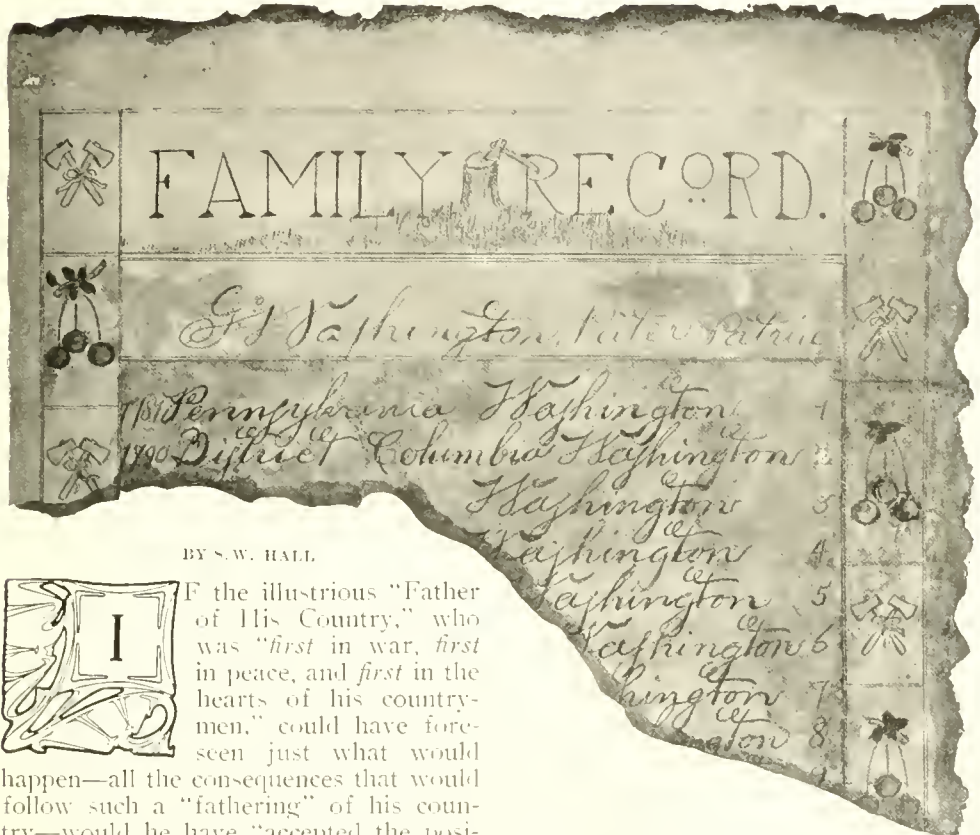 FAMILY RECORD.
G. Washington, Pater Patriæ
Pennsylvania Washington 1
1790 District Columbia Washington 2
Washington 3
Washington 4
Washington 5
Washington 6
hington 7
ngton 8
BY S. W. HALL
IF the illustrious "Father
of His Country," who
was "first in war, first
in peace, and first in the
hearts of his country-
men," could have fore-
seen just what would
happen—all the consequences that would
follow such a "fathering" of his coun-
try—would he have "accepted the posi-